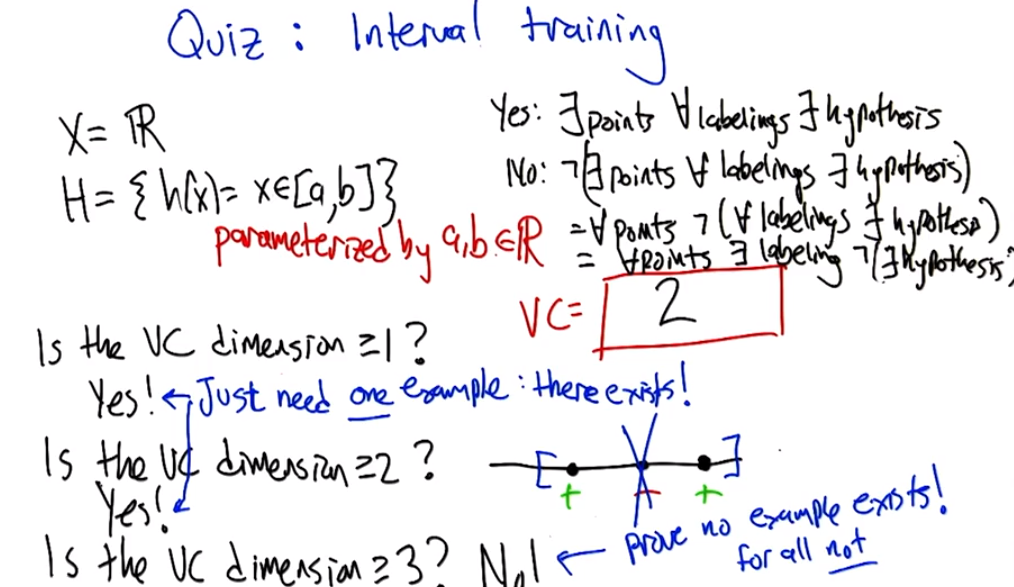 Quiz: Interval training
X = ℝ
H = { h(x) = x∈[a,b] }
parameterized by a,b ∈ ℝ
Yes: ∃points ∀labelings ∃hypothesis
No: ¬(∃points ∀ labelings ∃ hypothesis)
= ∀ points ¬(∀ labelings ∃ hypothesis)
= ∀points ∃ labeling ¬(∃hypothesis)
VC= 2
Is the VC dimension ≥1?
Yes! ← Just need one example: there exists!
Is the VC dimension ≥2?
Yes!
[ ]
+ - +
Is the VC dimension ≥3? No!
← prove no example exists!
for all not